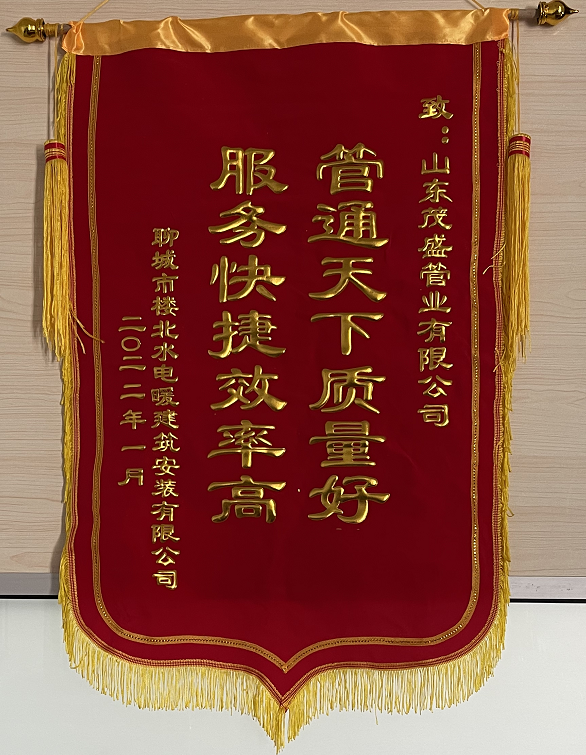 致：山东茂盛管业有限公司
管通天下质量好
服务快捷效率高
聊城市楼北水电暖建筑安装有限公司
二〇二二年一月